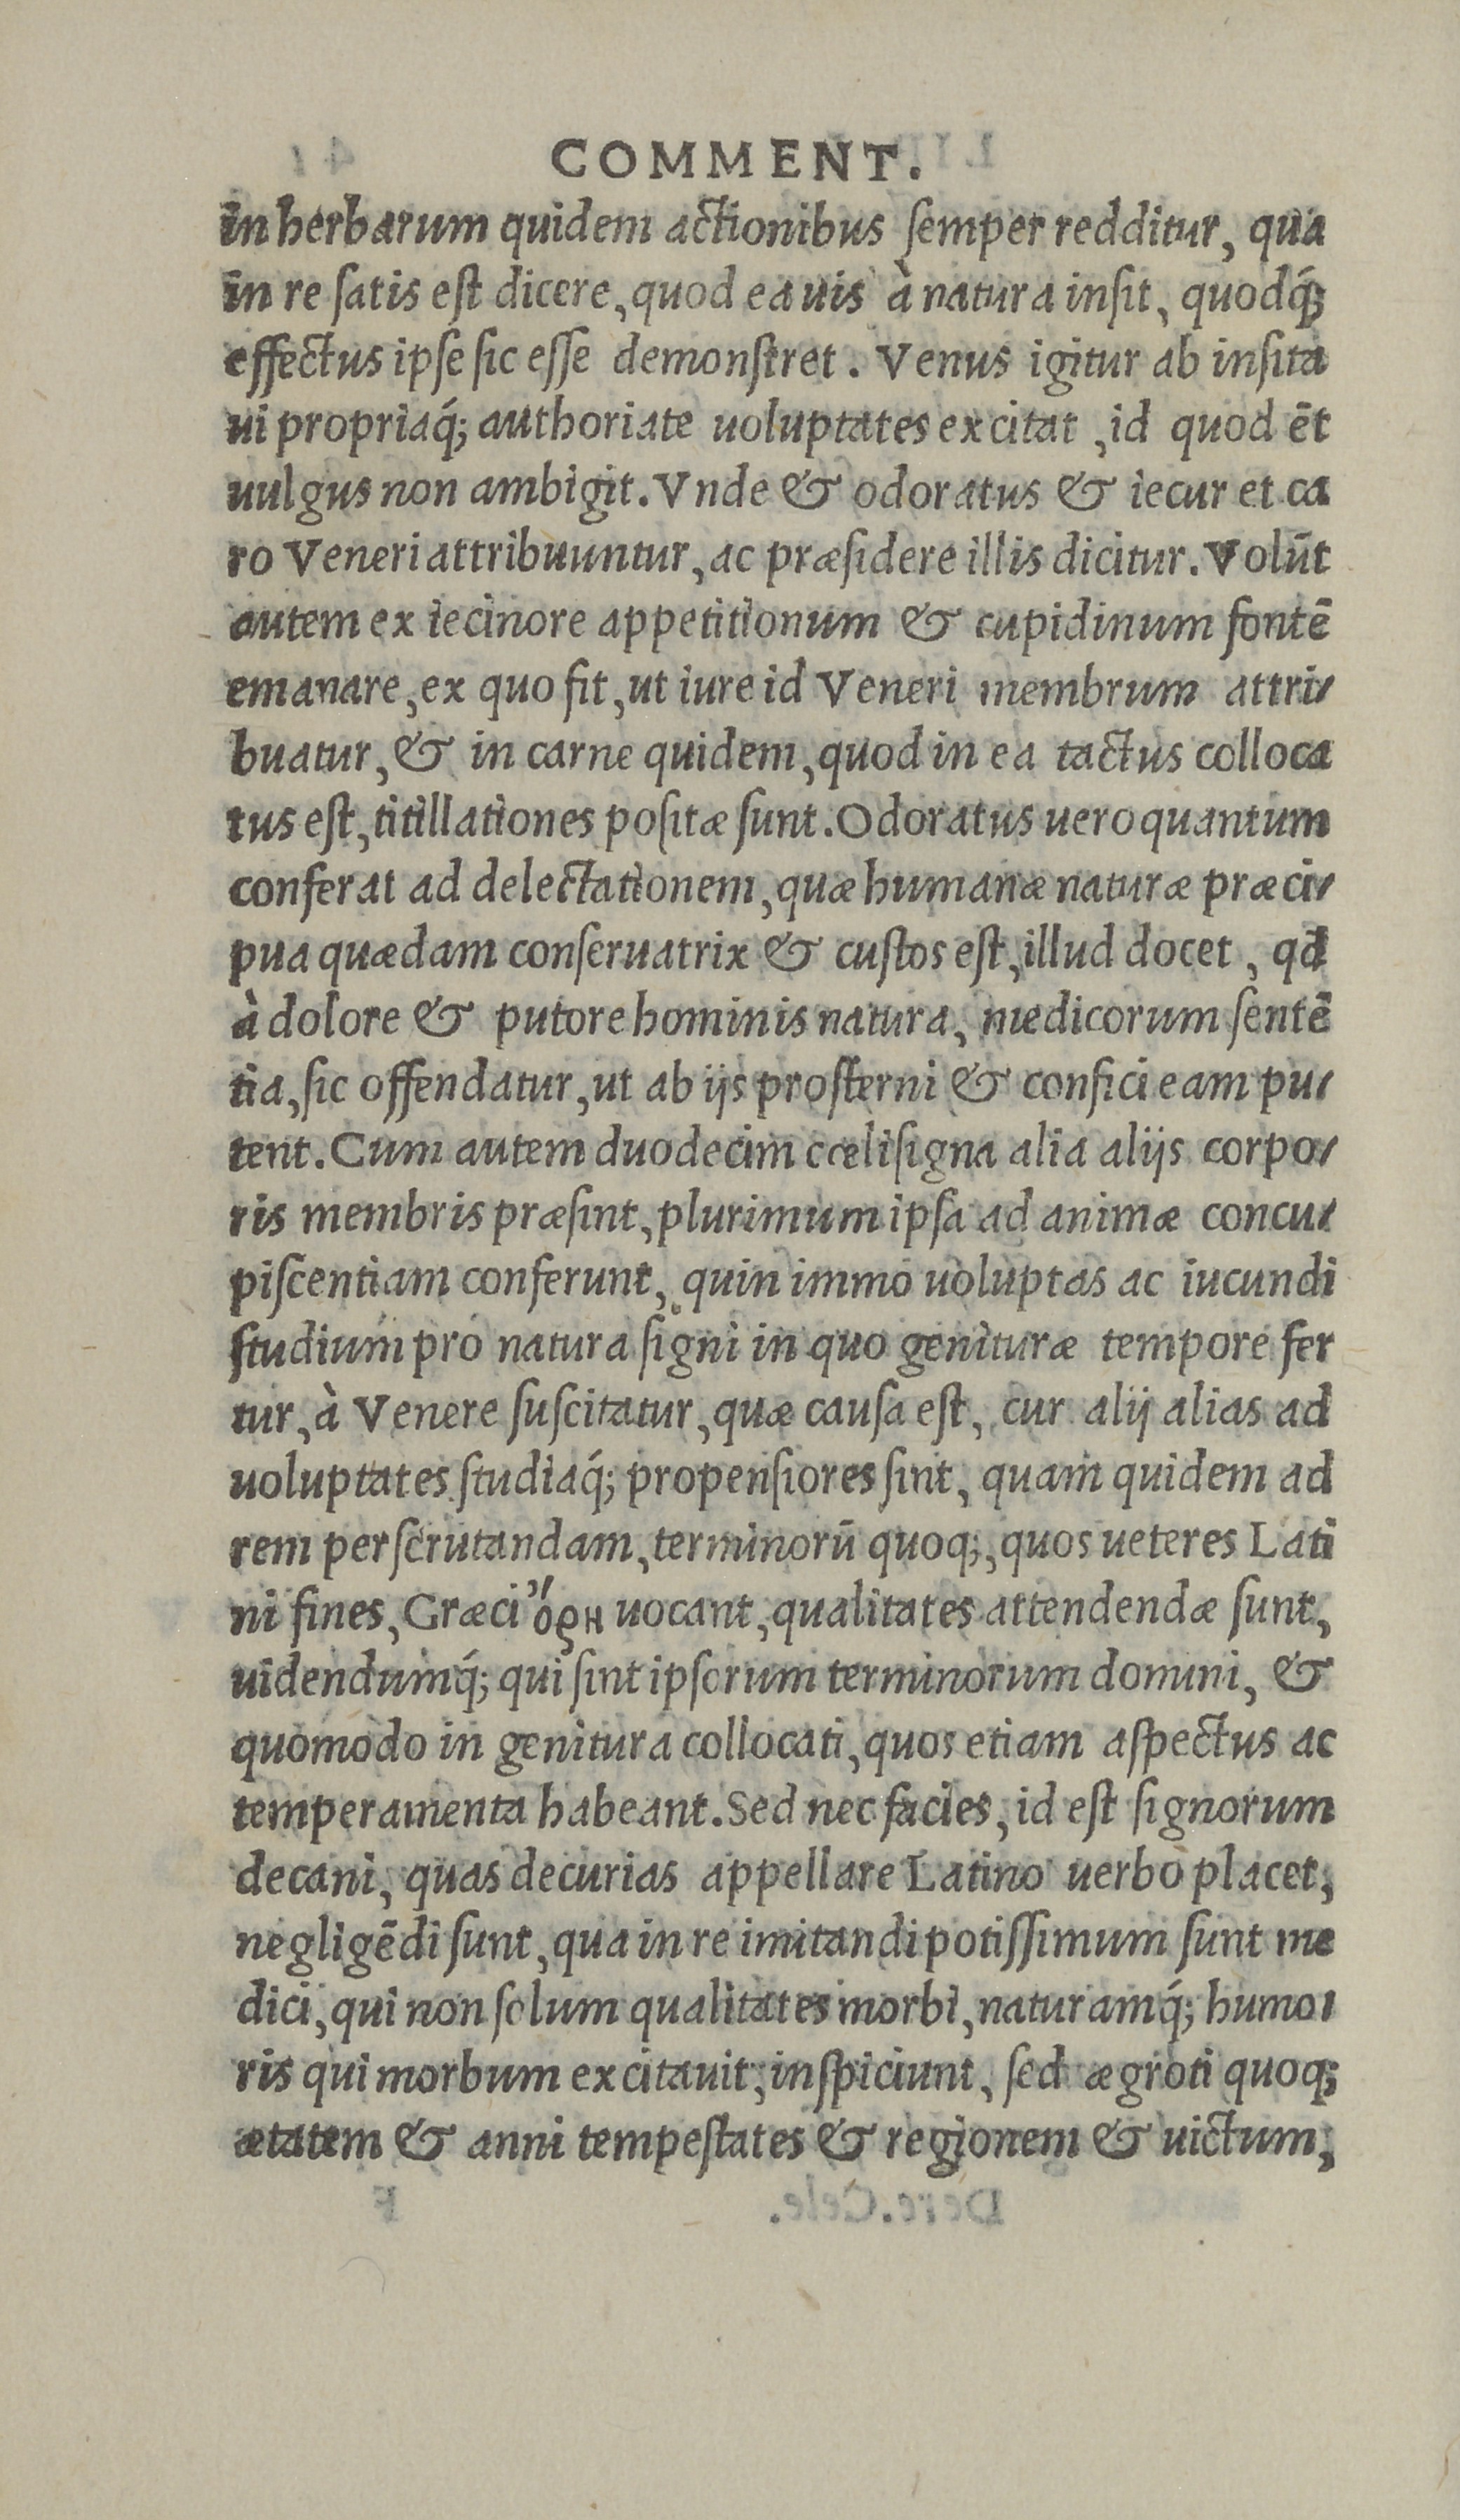 COMMENT.
in herbarum quidem actionibus ſemper redditur, qua
in re ſatis eſt dicere, quod ea uis à natura inſit, quodq́;
effectus ipſe ſic eſſe demonſtret. Venus igitur ab inſita
ui propriaq́; authoriate uoluptates excitat, id quod ēt
uulgus non ambigit. Vnde & odoratus & iecur et ca
ro Veneri attribuuntur, ac præſidere illis dicitur. Volūt
autem ex iecinore appetitionum & cupidinum fontē
emanare, ex quo fit, ut iure id Veneri membrum attri-
buatur, & in carne quidem, quod in ea tactus colloca
tus eſt, titillationes poſitæ ſunt. Odoratus uero quantum
conferat ad delectationem, quæ humanæ naturæ præci-
pua quædam conſeruatrix & cuſtos eſt, illud docet, qd
à dolore & putore hominis natura, medicorum ſentē
tia, ſic offendatur, ut ab ijs proſterni & confici eam pu-
tent. Cum autem duodecim cœli ſigna alia alijs corpo-
ris membris præſint, plurimum ipſa ad animæ concu-
piſcentiam conferunt, quin immo uoluptas ac iucundi
ſtudium pro natura ſigni in quo genituræ tempore fer
tur, à Venere ſuſcitatur, quæ cauſa eſt, cur alij alias ad
uoluptates ſtudiaq́; propenſiores ſint, quam quidem ad
rem perſcrutandam, terminorū quoq;, quos ueteres Lati
ni fines, Græci ὅρη uocant, qualitates attendendæ ſunt,
uidendumq́; qui ſint ipſorum terminorum domini, &
quomodo in genitura collocati, quos etiam aſpectus ac
temperamenta habeant. Sed nec facies, id eſt ſignorum
decani, quas decurias appellare Latino uerbo placet,
negligēdi ſunt, qua in re imitandi potiſſimum ſunt me
dici, qui non ſolum qualitates morbi, naturamq́; humo-
ris qui morbum excitauit, inſpiciunt, ſed ægroti quoq;
ætatem & anni tempeſtates & regionem & uictum,